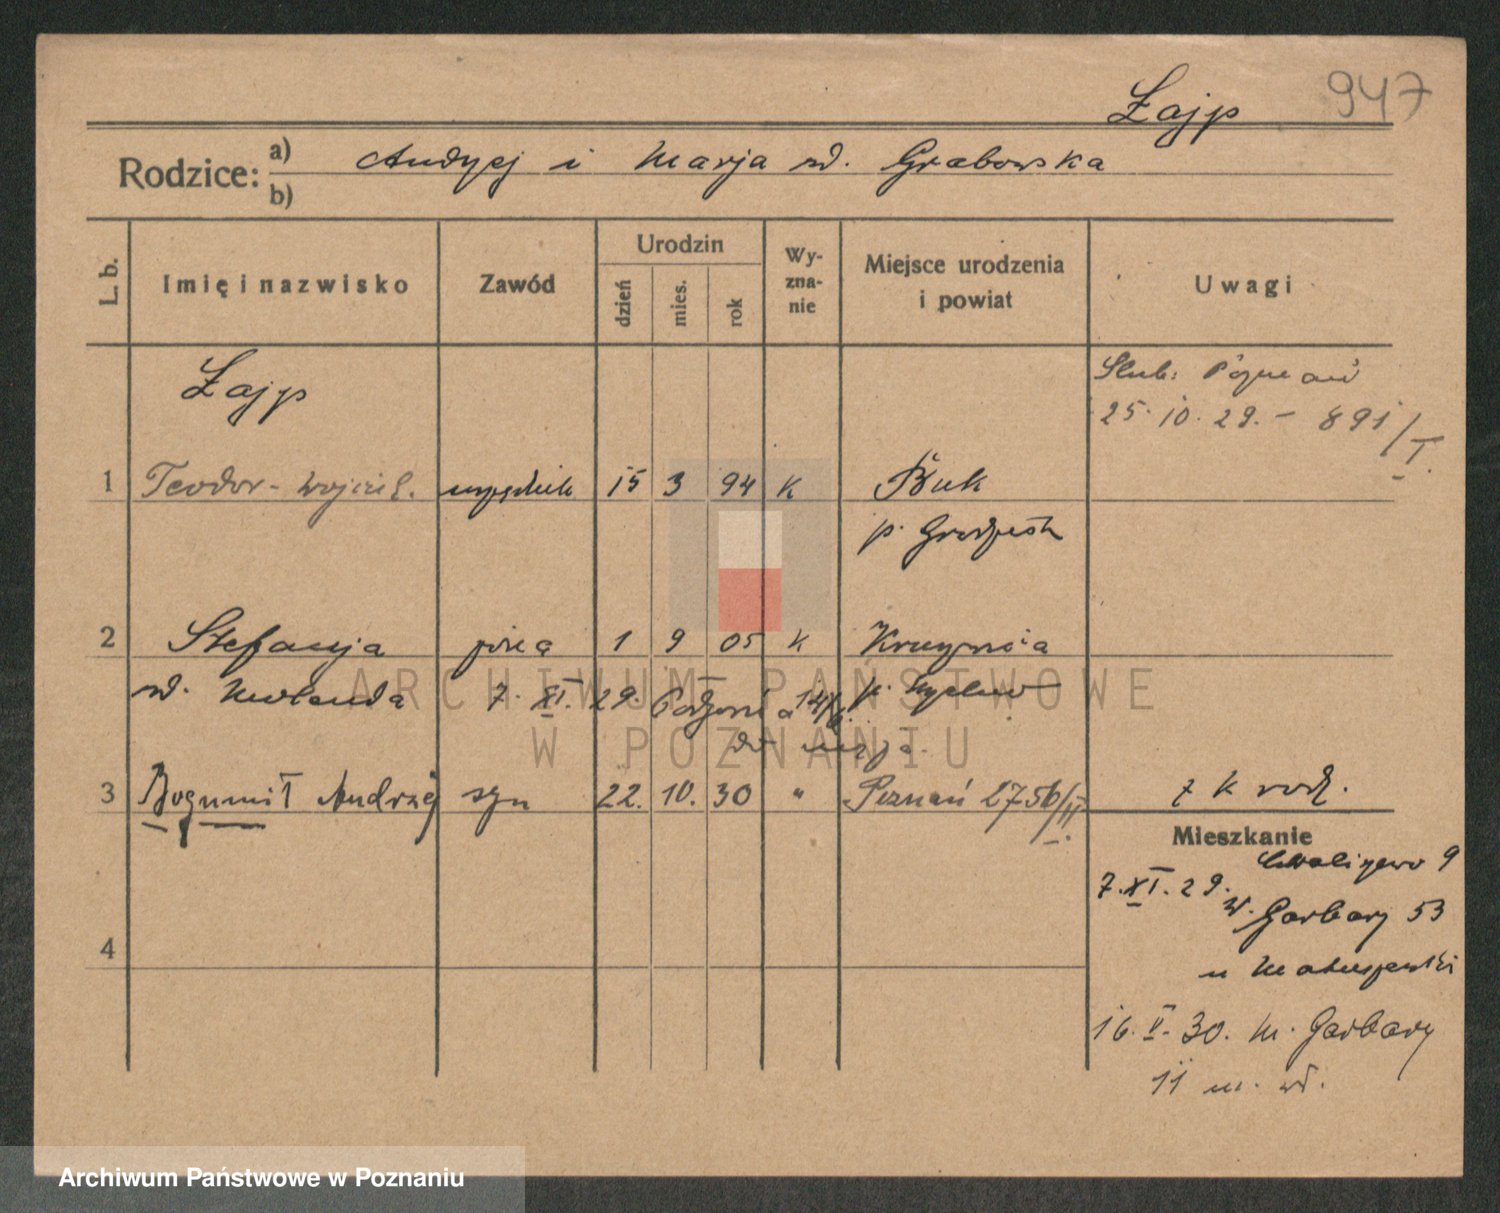 947
Łajp
Rodzice: a) Andrzej i Marja zd. Grabowska
b)
L. b.
Imię i nazwisko
Zawód
Urodzin
dzień
mies.
rok
Wy-
zna-
nie
Miejsce urodzenia
i powiat
Uwagi
Łajp
Ślub: Poznań
25.10.29. – 891/I.
1 Teodor - Wojciech. urzędnik 15 3 94 K Buk
p. Grodzisk
2 Stefanja przą 1 9 05 K
zd. 7. XI. 29.
3 Bogumił Andrzej syn 22. 10. 30 " Poznań 2756/II.
z K rodz.
Mieszkanie
Chwaliszewo 9
7. XI. 29.
W. Garbary 53
u Matuszewski
16. V. 30. M. Garbary
11 m. wł.
4
ARCHIWUM PAŃSTWOWE
W POZNANIU
Archiwum Państwowe w Poznaniu